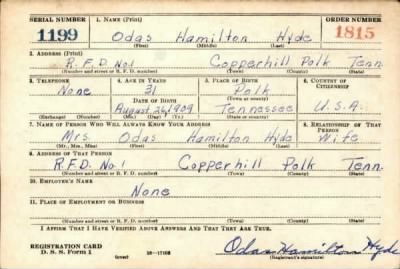 SERIAL NUMBER 1. NAME (Print) ORDER NUMBER
1199 Odas Hamilton Hyde 1815
(First) (Middle) (Last)
2. ADDRESS (Print)
R.F.D. No 1 Copperhill Polk Tenn.
(Number and street or R. F. D. number) (Town) (County) (State)
3. TELEPHONE 4. AGE IN YEARS 5. PLACE OF BIRTH 6. COUNTRY OF CITIZENSHIP
None 31 Polk
(Town or county)
DATE OF BIRTH
August 26, 1909 Tennessee U.S.A.
(Exchange) (Number) (Mo.) (Day) (Yr.) (State or country)
7. NAME OF PERSON WHO WILL ALWAYS KNOW YOUR ADDRESS 8. RELATIONSHIP OF THAT PERSON
Mrs. Odas Hamilton Hyde Wife
(Mr., Mrs., Miss) (First) (Middle) (Last)
9. ADDRESS OF THAT PERSON
R.F.D. No. 1 Copperhill Polk Tenn.
(Number and street or R. F. D. number) (Town) (County) (State)
10. EMPLOYER'S NAME
None
11. PLACE OF EMPLOYMENT OR BUSINESS
(Number and street or R. F. D. number) (Town) (County) (State)
I AFFIRM THAT I HAVE VERIFIED ABOVE ANSWERS AND THAT THEY ARE TRUE.
REGISTRATION CARD
D. S. S. Form 1 (over) Odas Hamilton Hyde
(Registrant's signature)